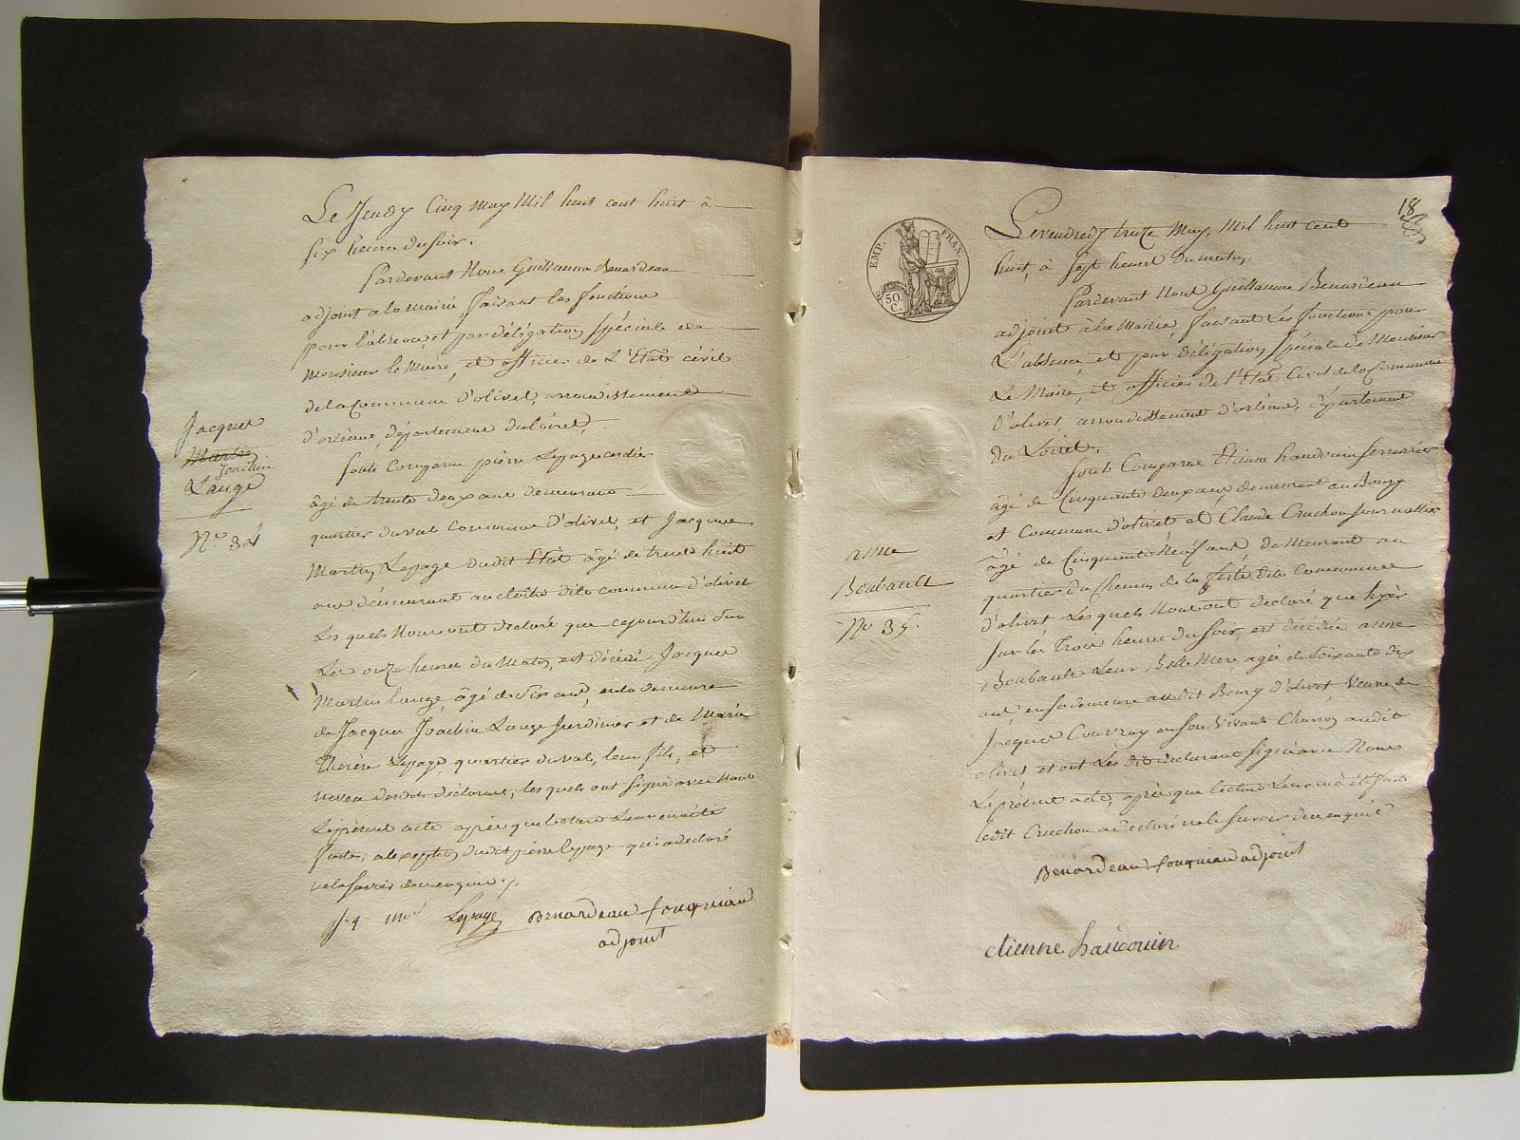 Le Jeudy Cinq may Mil huit cent huit à
six heures du soir.
Pardevant Nous Guillaume Benardeau
adjoint a la mairie faisant les fonctions
pour l'absence et par délégation spéciale de
Monsieur le Maire, et officier de L'Etat civil
de la Commune d'olivet, arrondissement
d'orléans, département du Loiret,
Sont Comparu pierre Lepage
âgé de trente deux ans demeurant
quartier du val commune d'olivet, et Jacques
Martin Lepage dudit Etat âgé de trente huit
ans demeurant au cloitre dite commune d'olivet
Les quels Nous ont déclaré que cejourd'hui
Les onze heures du Matin, est décédé Jacques
Martin Laugé, âgé de six ans, en la demeure
de Jacques Joachin Laugé Jardinier et de Marie
Thérèse Lepage, quartier du val, leur fils, et
neveu desdits déclarans, lesquels ont signé avec Nous
Le présent acte après que lecture Leur en a été
faite, a l'exception dudit pierre lepage qui a declaré
ne le savoir de ce enquis
Jacques
Martin
Joachin
Laugé
N.º 34
Lepage Benardeau fouqueau
adjoint
18
EMP. FRAN.
50 C.
Le vendredy treize May, Mil huit cent
huit, à sept heures du matin,
Pardevant Nous Guillaume Benardeau
adjoint à la Mairie, faisant Les fonctions pour
L'absence et par délégation spéciale de Monsieur
Le Maire, et officier de l'Etat Civil de la Commune
d'olivet, arrondissement d'orléans, département
du Loiret,
Sont Comparus Etienne hardouin serrurier
âgé de Cinquante deux ans, demeurant au Bourg
et Commune d'olivet et Claude Cruchon Journallier
âgé de Cinquante Neuf ans demeurant au
quartier du Chemin de la ferté dite Commune
d'olivet Lesquels Nous ont declaré que hyer
sur les Trois heures du soir, est décédée anne
Boubault Leur Belle Mere agée de soixante dix
ans en sa demeure audit Bourg d'olivet Veuve de
Jacques Couvray en son vivant Charon audit
olivet et ont Les dits déclarans signé avec Nous
Le présent acte, après que lecture Leur en a été faite
ledit Cruchon a déclaré ne le savoir de ce enquis
anne
Boubault
N.º 35.
Benardeau fouqueau adjoint
etienne hardouin